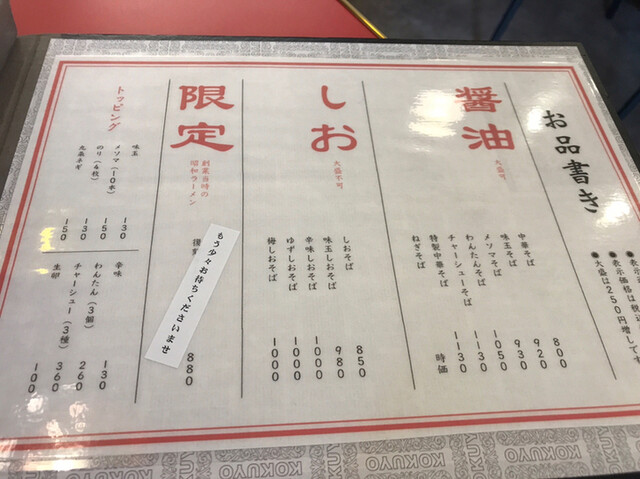 お品書き
●表示
●表示価格は税込
●大盛は250円増しです
醤油
大盛可
中華そば 800
味玉そば 920
メンマそば 930
わんたんそば 1050
チャーシューそば 1130
特製中華そば 1130
ねぎそば 時価
しお
大盛不可
しおそば 850
味玉しおそば 980
辛味しおそば 1000
ゆずしおそば 1000
梅しおそば 1000
限定
創業当時の
昭和ラーメン
復
もう少々お待ちくださいませ
880
トッピング
味玉 130
メンマ(10本) 150
のり(4枚) 130
九条ネギ 150
辛味 130
わんたん(3個) 260
チャーシュー(3種) 360
生卵 100
KOKUYO
KOKUYO
KOKUYO
KOKUYO